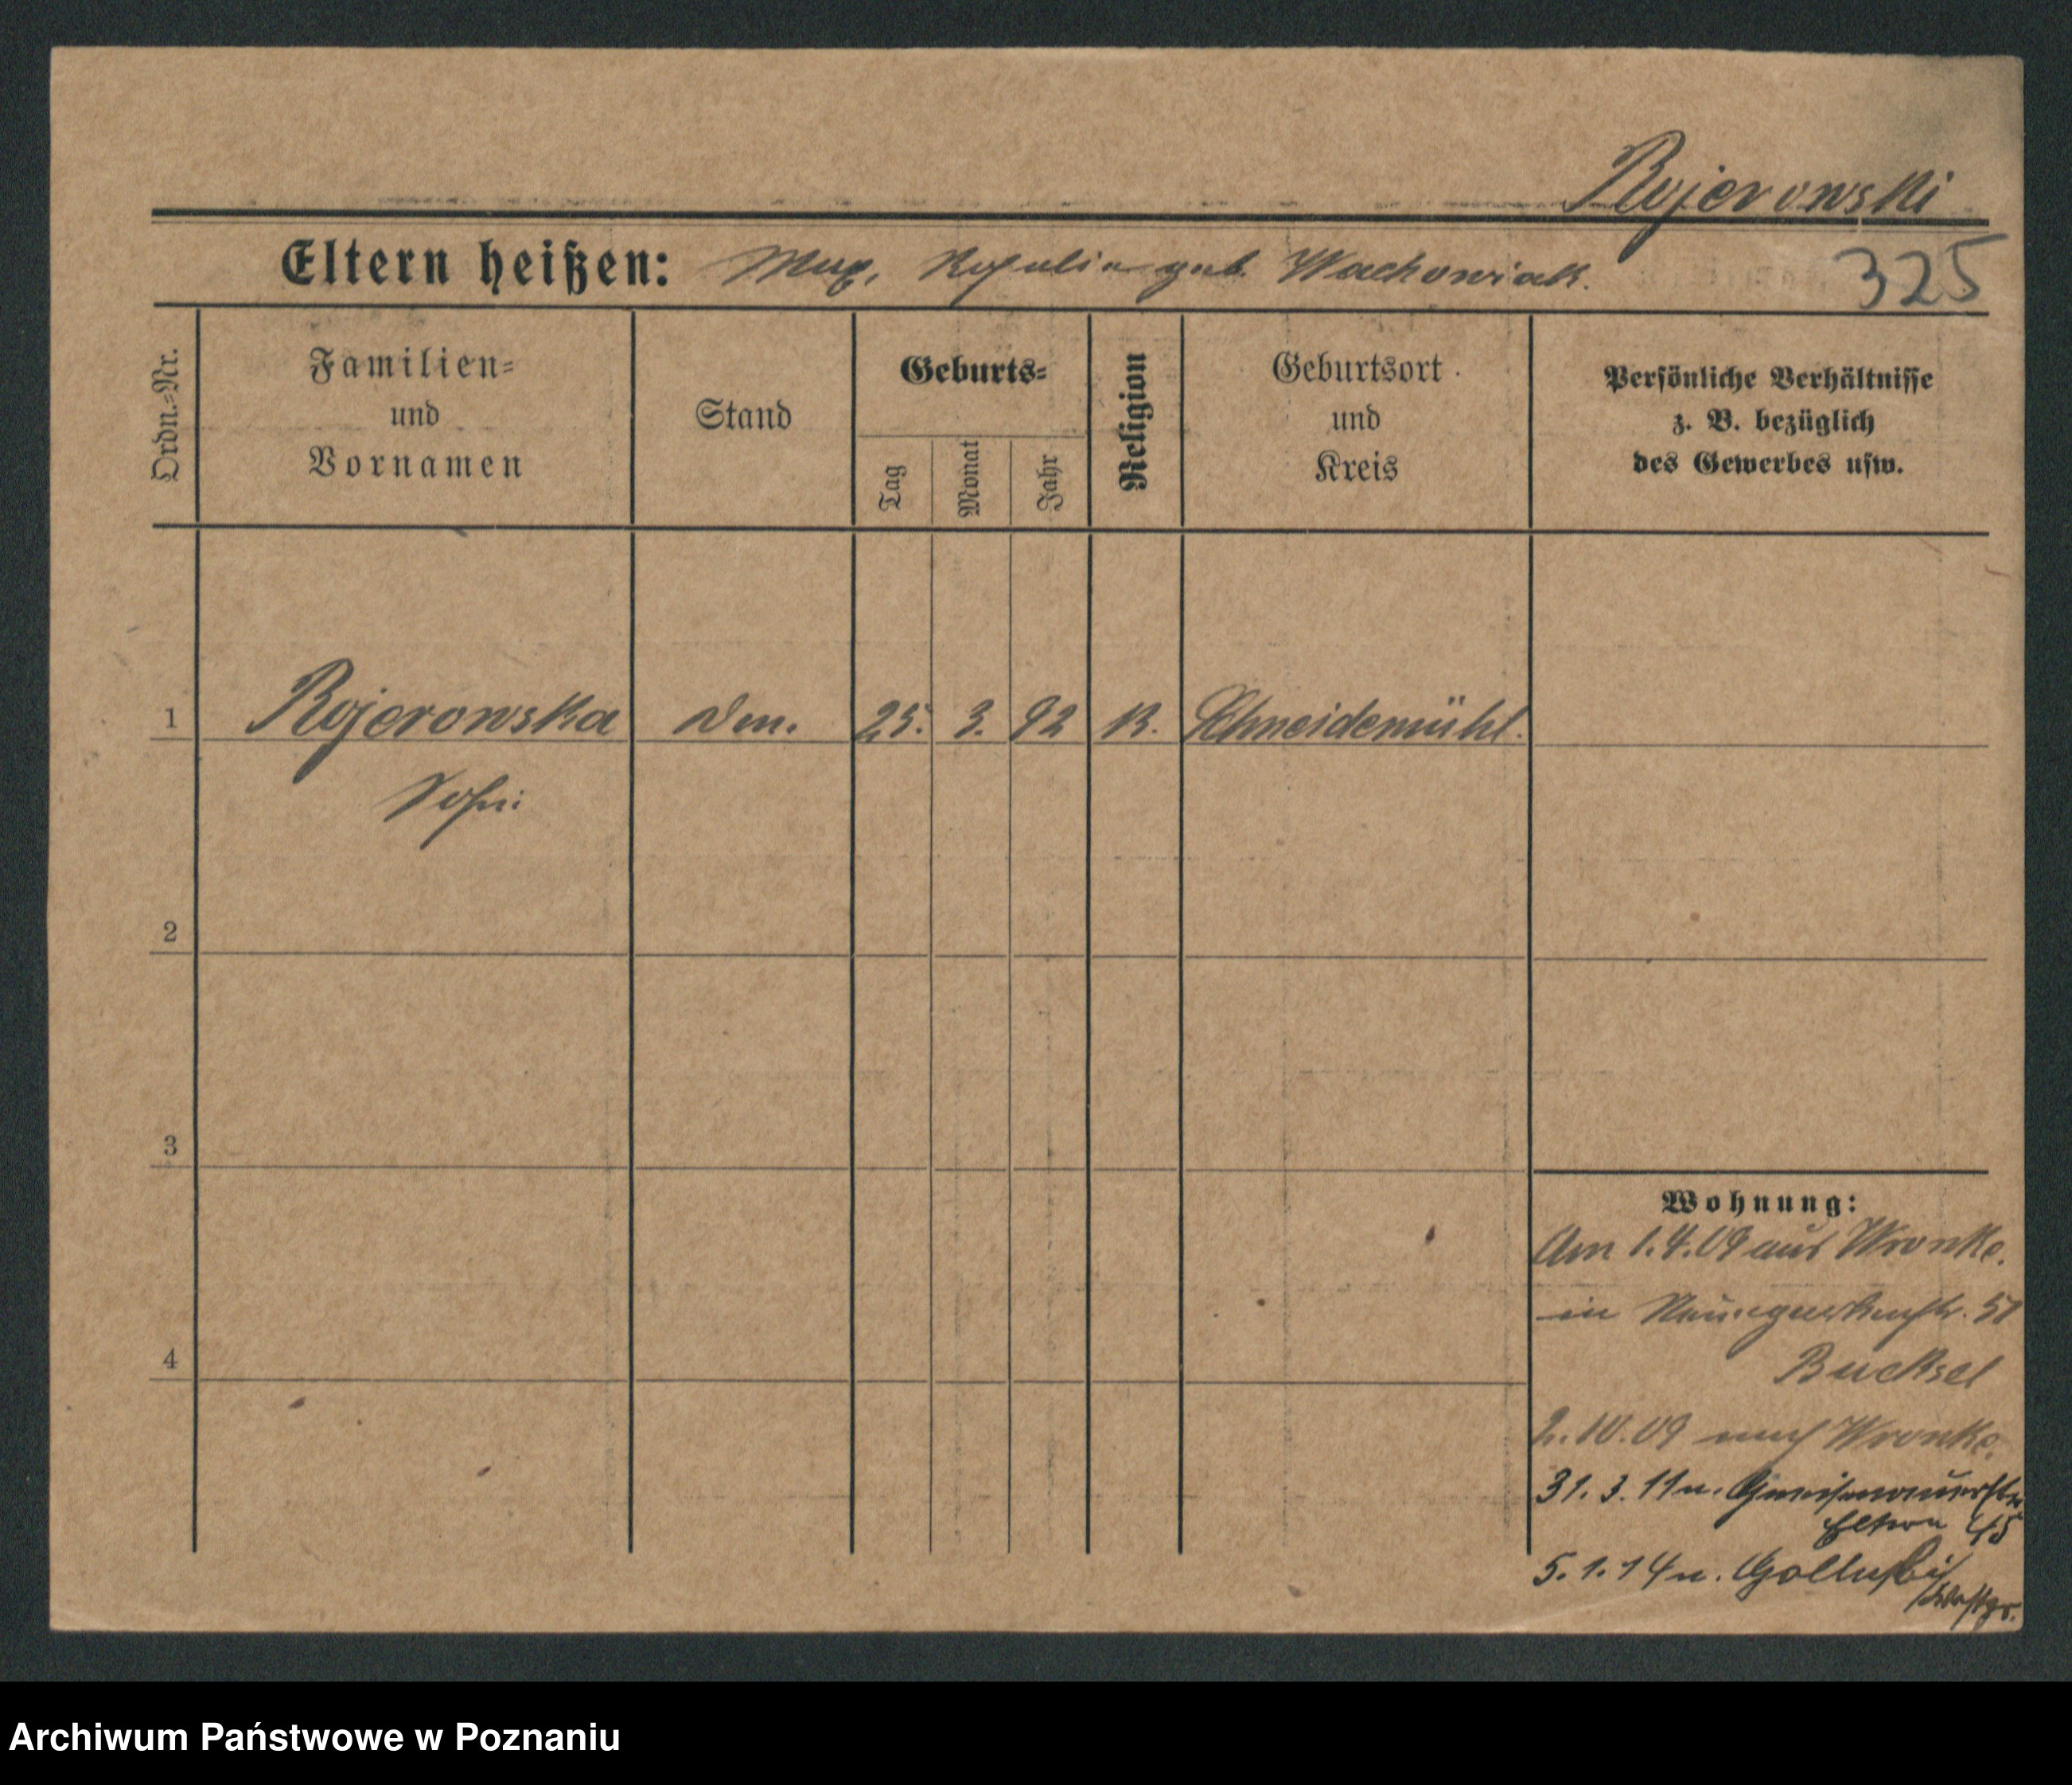 Rojerowski
Eltern heißen: Max, Rosalia geb. Wachowiak.
325
Ordn.-Nr.
Familien-
und
Vornamen
Stand
Geburts-
Tag
Monat
Jahr
Religion
Geburtsort
und
Kreis
Persönliche Verhältnisse
z. B. bezüglich
des Gewerbes usw.
1 Rojerowska 25. 3. 92 K. Schneidemühl.
Sofie
2
3
Wohnung:
Am 1.4.09 aus Wronke.
in 51
4
Bucksel
2.10.09 nach Wronke.
31. 3. 11 n. Gneisenaustr
Eltern 45
5. 1. 14 n.
Archiwum Państwowe w Poznaniu